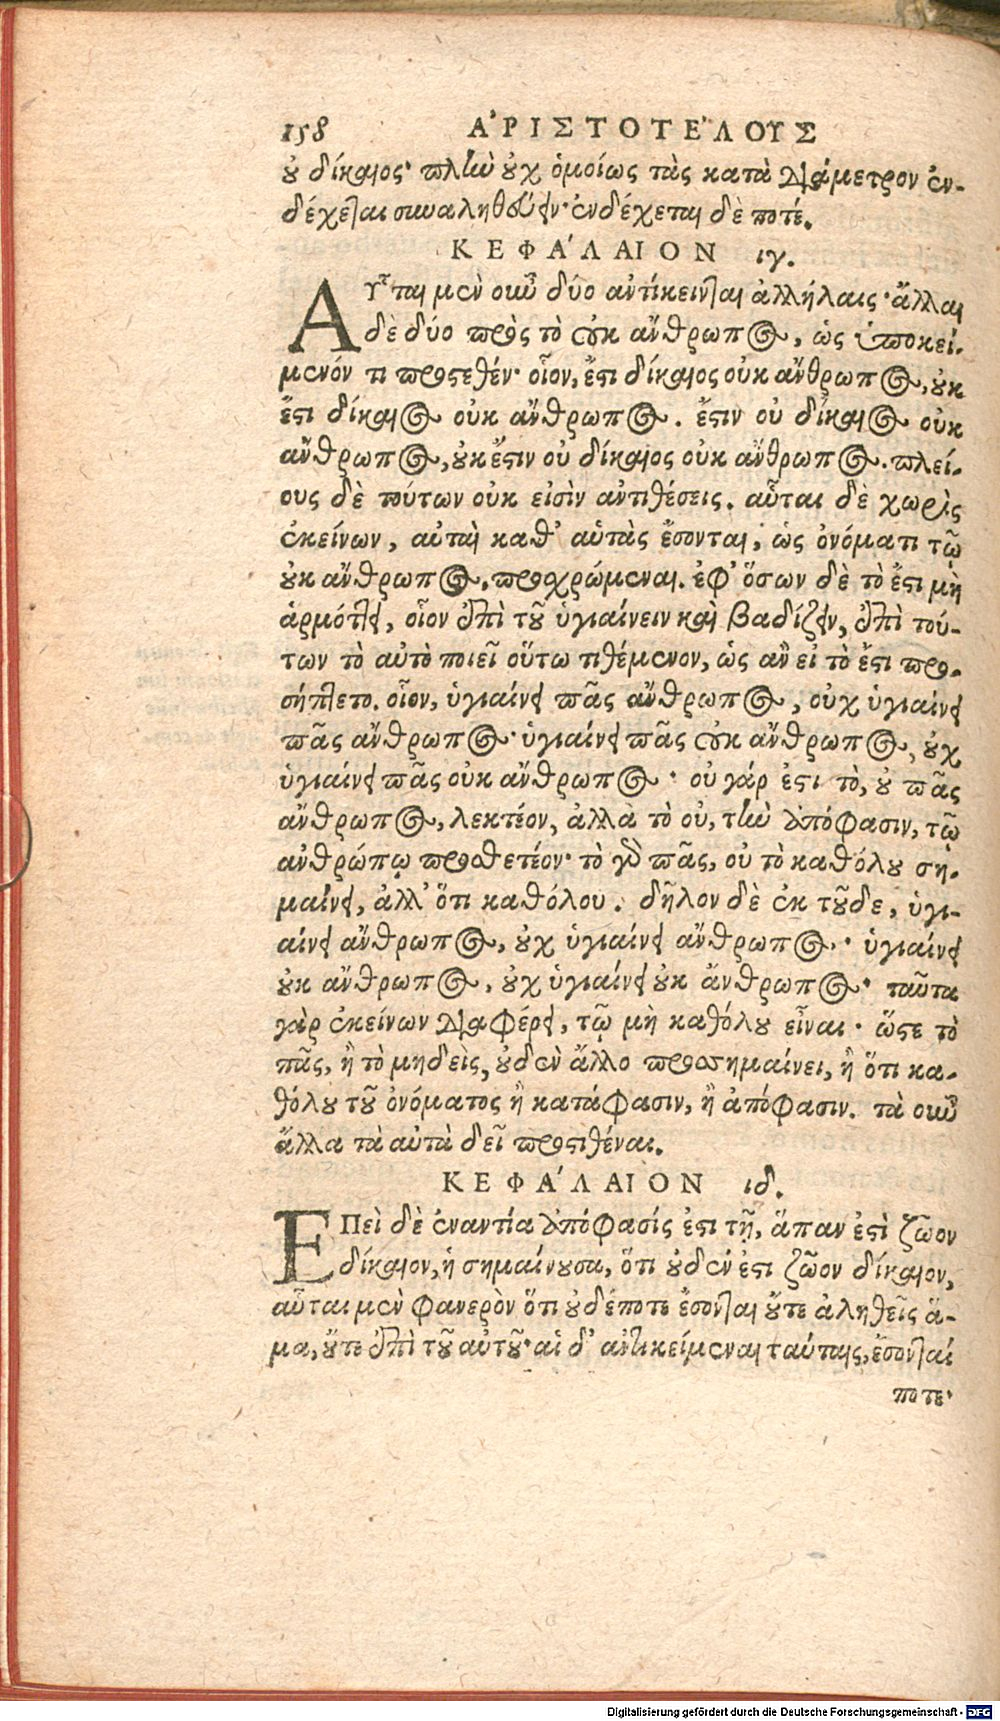 158 ἈΡΙΣΤΟΤΕ΄ΛΟΥΣ
ȣ δίκαιος· πλὴν ȣχ ὁμοίως τὰς κατὰ διάμετρον ἐν-
δέχεται συναληθεύειν· ἐνδέχεται δὲ ποτέ.
ΚΕΦΑ΄ΛΑΙΟΝ ιγ.
ΑΥ῟ται μὲν οὖν δύο ἀντίκεινται ἀλλήλαις· ἄλλαι
δὲ δύο πρὸς τὸ οὐκ ἄνθρωπος, ὡς ὑποκεί-
μενόν τι προςτεθέν· οἷον, ἔϛι δίκαιος οὐκ ἄνθρωπος, ȣκ
ἔϛι δίκαιος οὐκ ἄνθρωπος. ἔϛιν οὐ δίκαιος οὐκ
ἄνθρωπος, ȣκ ἔϛιν οὐ δίκαιος οὐκ ἄνθρωπος. πλεί-
ους δὲ τούτων οὐκ εἰσὶν ἀντιθέσεις. αὗται δὲ χωρὶς
ἐκείνων, αὐταὶ καθ’ αὑτὰς ἔσονται, ὡς ὀνόματι τῷ
ȣκ ἄνθρωπος, προσχρώμεναι. ἐφ’ ὅσων δὲ τὸ ἔϛι μὴ
ἁρμόττει, οἷον ἐπὶ τȣ͂ ὑγιαίνειν καὶ βαδίζειν, ἐπὶ τού-
των τὸ αὐτὸ ποιεῖ οὕτω τιθέμενον, ὡς ἂν εἰ τὸ ἔϛι προ-
σήπτετο. οἷον, ὑγιαίνει πᾶς ἄνθρωπος, οὐχ ὑγιαίνει
πᾶς ἄνθρωπος· ὑγιαίνει πᾶς οὐκ ἄνθρωπος, ȣχ
ὑγιαίνει πᾶς οὐκ ἄνθρωπος· οὐ γάρ ἐϛι τὸ, ȣ πᾶς
ἄνθρωπος, λεκτέον, ἀλλὰ τὸ οὐ, τὴν ἀπόφασιν, τῷ
ἀνθρώπῳ προσθετέον· τὸ γὰρ πᾶς, οὐ τὸ καθόλȣ ση-
μαίνει, ἀλλ’ ὅτι καθόλου. δῆλον δὲ ἐκ τȣ͂δε, ὑγι-
αίνει ἄνθρωπος, ȣχ ὑγιαίνει ἄνθρωπος· ὑγιαίνει
ȣκ ἄνθρωπος, ȣχ ὑγιαίνει ȣκ ἄνθρωπος· ταῦτα
γὰρ ἐκείνων διαφέρει, τῷ μὴ καθόλȣ εἶναι· ὥϛε τὸ
πᾶς, ἢ τὸ μηδεὶς, ȣδὲν ἄλλο προσσημαίνει, ἢ ὅτι κα-
θόλȣ τȣ͂ ὀνόματος ἢ κατάφασιν, ἢ ἀπόφασιν. τὰ οὖν
ἄλλα τὰ αὐτὰ δεῖ προςτιθέναι.
ΚΕΦΑ΄ΛΑΙΟΝ ιδ.
ΕΠεὶ δὲ ἐναντία ἀπόφασίς ἐϛι τῇ, ἅπαν ἐϛὶ ζῶον
δίκαιον, ἡ σημαίνȣσα, ὅτι ȣδέν ἐϛι ζῶον δίκαιον,
αὗται μὲν φανερὸν ὅτι ȣδέποτε ἔσονται ȣ῎τε ἀληθεῖς ἅ-
μα, ȣ῎τε ἐπὶ τȣ͂ αὐτȣ͂· αἱ δ’ ἀντικείμεναι ταύταις, ἔσονταί
ποτε·
Digitalisierung gefördert durch die Deutsche Forschungsgemeinschaft - DFG